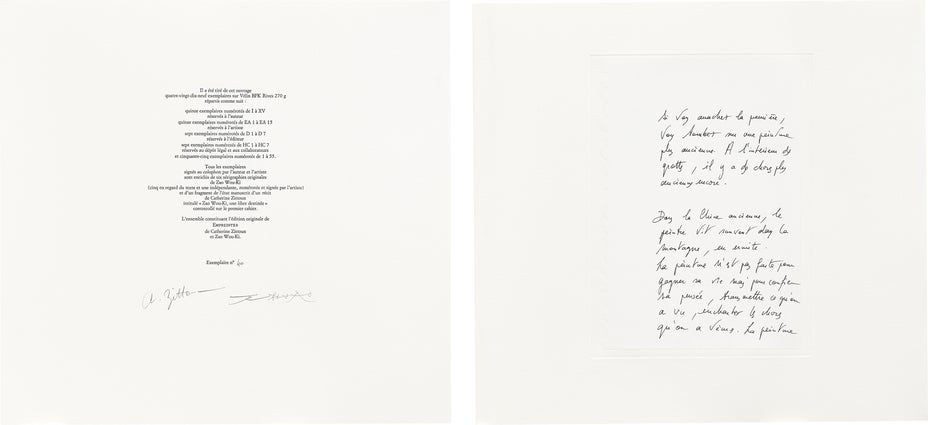 Il a été tiré de cet ouvrage
quatre-vingt-dix-neuf exemplaires sur Vélin BFK Rives 270 g
répartis comme suit :
quinze exemplaires numérotés de I à XV
réservés à l'auteur
quinze exemplaires numérotés de EA 1 à EA 15
réservés à l'artiste
sept exemplaires numérotés de D 1 à D 7
réservés à l'éditeur
sept exemplaires numérotés de HC 1 à HC 7
réservés au dépôt légal et aux collaborateurs
et cinquante-cinq exemplaires numérotés de 1 à 55.
Tous les exemplaires
signés au colophon par l'auteur et l'artiste
sont enrichis de six sérigraphies originales
de Zao Wou-Ki
(cinq en regard du texte et une indépendante, numérotés et signés par l'artiste)
et d'un fragment de l'état manuscrit d'un récit
de Catherine Zittoun
intitulé « Zao Wou-Ki, une libre destinée »
contrecollé sur le premier cahier.
L'ensemble constituant l'édition originale de
EMPREINTES
de Catherine Zittoun
et Zao Wou-Ki.
Exemplaire n°
C. Zitto
Si vous arrachez la première,
vous tombez sur une peinture
plus ancienne. A l'intérieur des
grottes, il y a des choses plus
anciennes encore.
Dans la Chine ancienne, le
peintre vit souvent dans la
montagne, en ermite.
La peinture n'est pas faite pour
gagner sa vie mais pour confier
sa pensée, transmettre ce qu'on
a vu, enchanter les choses
qu'on a vécues. La peinture